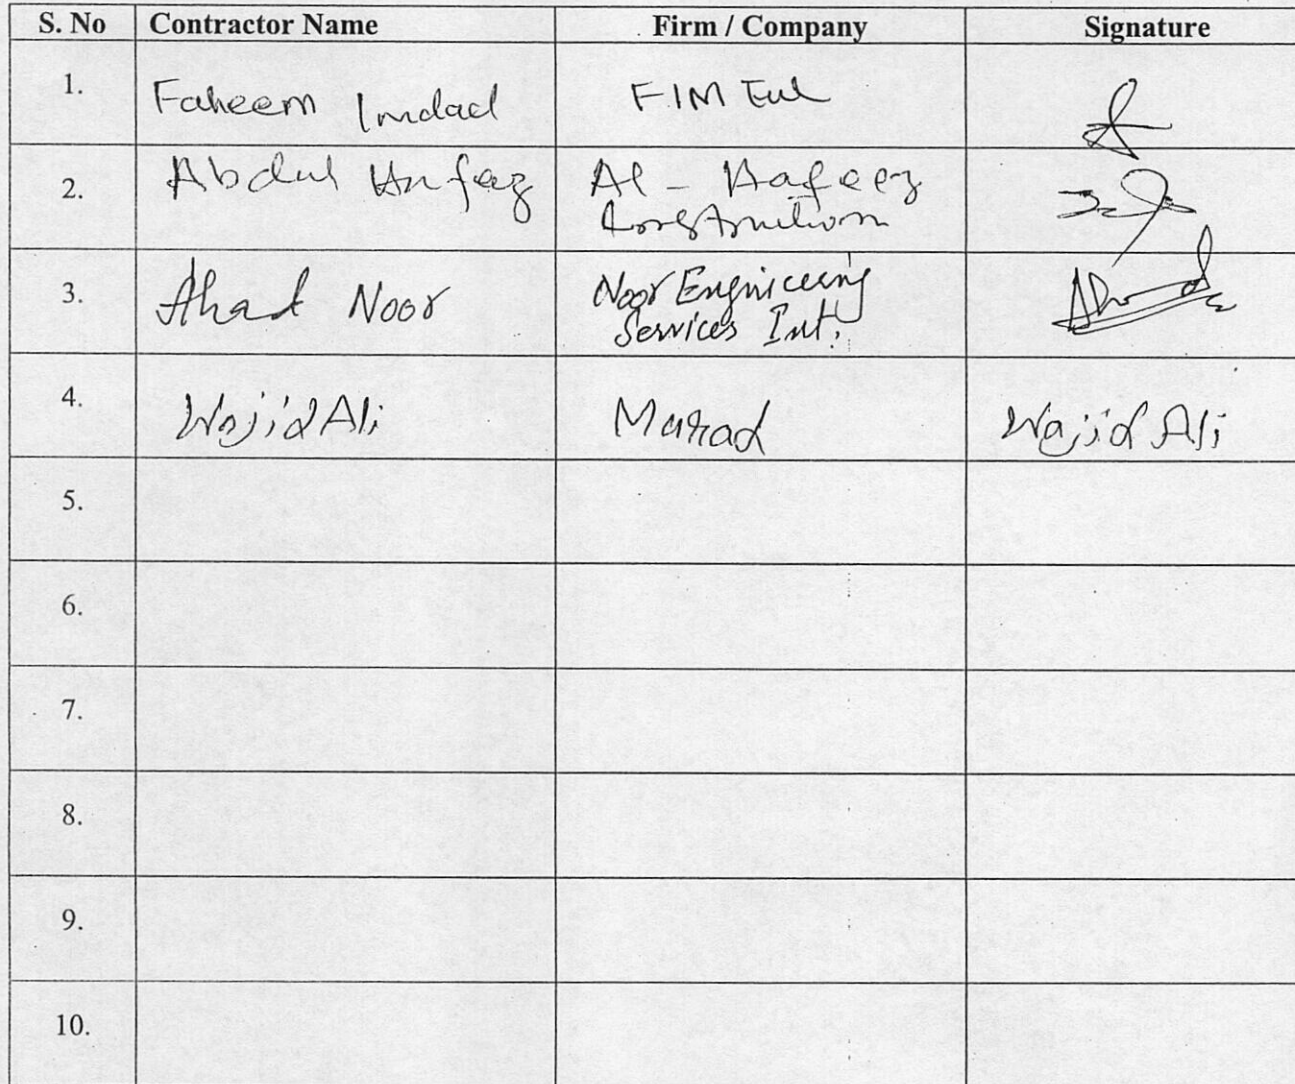 S. No Contractor Name Firm / Company Signature
1. Faheem Imdad FIM
2. Abdul Hafeez Al - Hafeez
Construction
3. Ahad Noor Noor Engineering
Services Int.
4. Wajid Ali Murad Wajid Ali
5.
6.
7.
8.
9.
10.